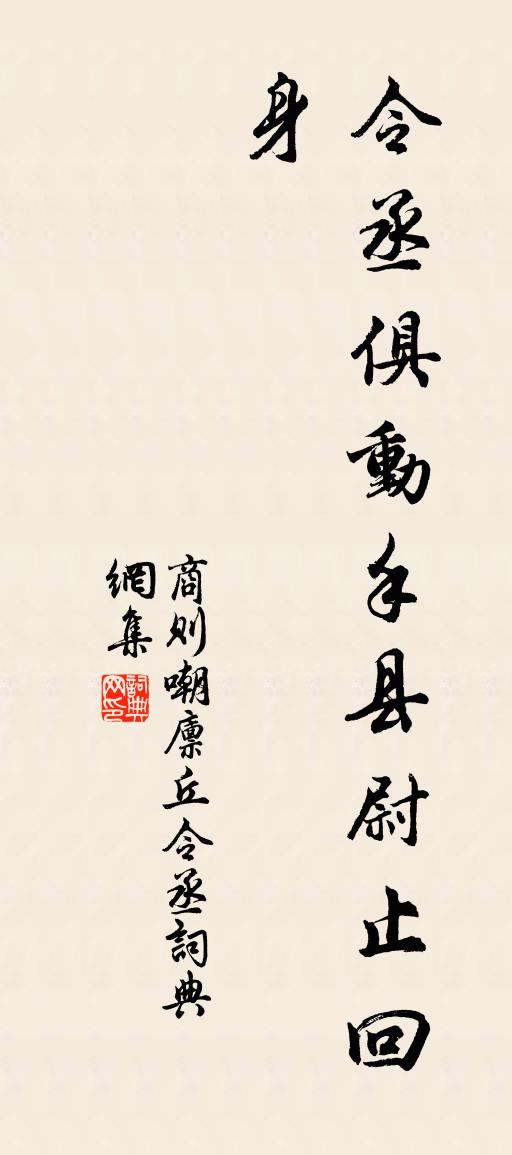 令丞俱動手县尉止回
身
商则嘲廪丘令丞詞典
網集
詞典
网印